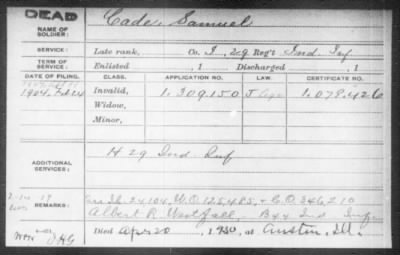 DEAD
NAME OF SOLDIER: Cade, Samuel
SERVICE: Late rank, Co. I, 29 Reg't Ind. Inf
TERM OF SERVICE: Enlisted , 1 Discharged , 1
DATE OF FILING. CLASS. APPLICATION NO. LAW. CERTIFICATE NO.
1904, Feb 24 Invalid, 1.309.150 1.079.426
Widow,
Minor,
ADDITIONAL SERVICES: H 29 Ind. Inf
REMARKS:
Albert R. Westfall, Ind Inf.
Died Apr 20, 1930, at Austin, Ill.